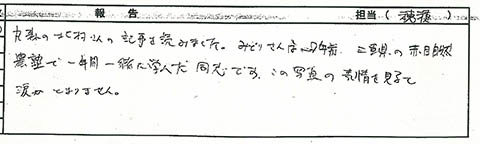 報 告 担当( 渡邉 )
の北村さんの記事を読みました。みどりさんは 年前 三重県の赤目自然
農塾で一年間一緒に学んだ同志です。この写真の表情を見て
涙がとまりません。